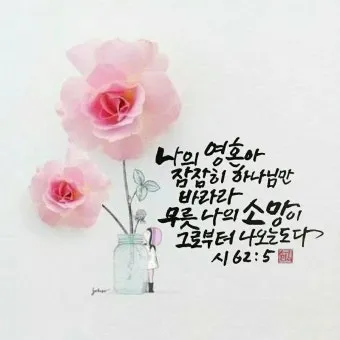 나의 영혼아
잠잠히 하나님만
바라라
무릇 나의 소망이
그로부터 나오는도다
시 62:5